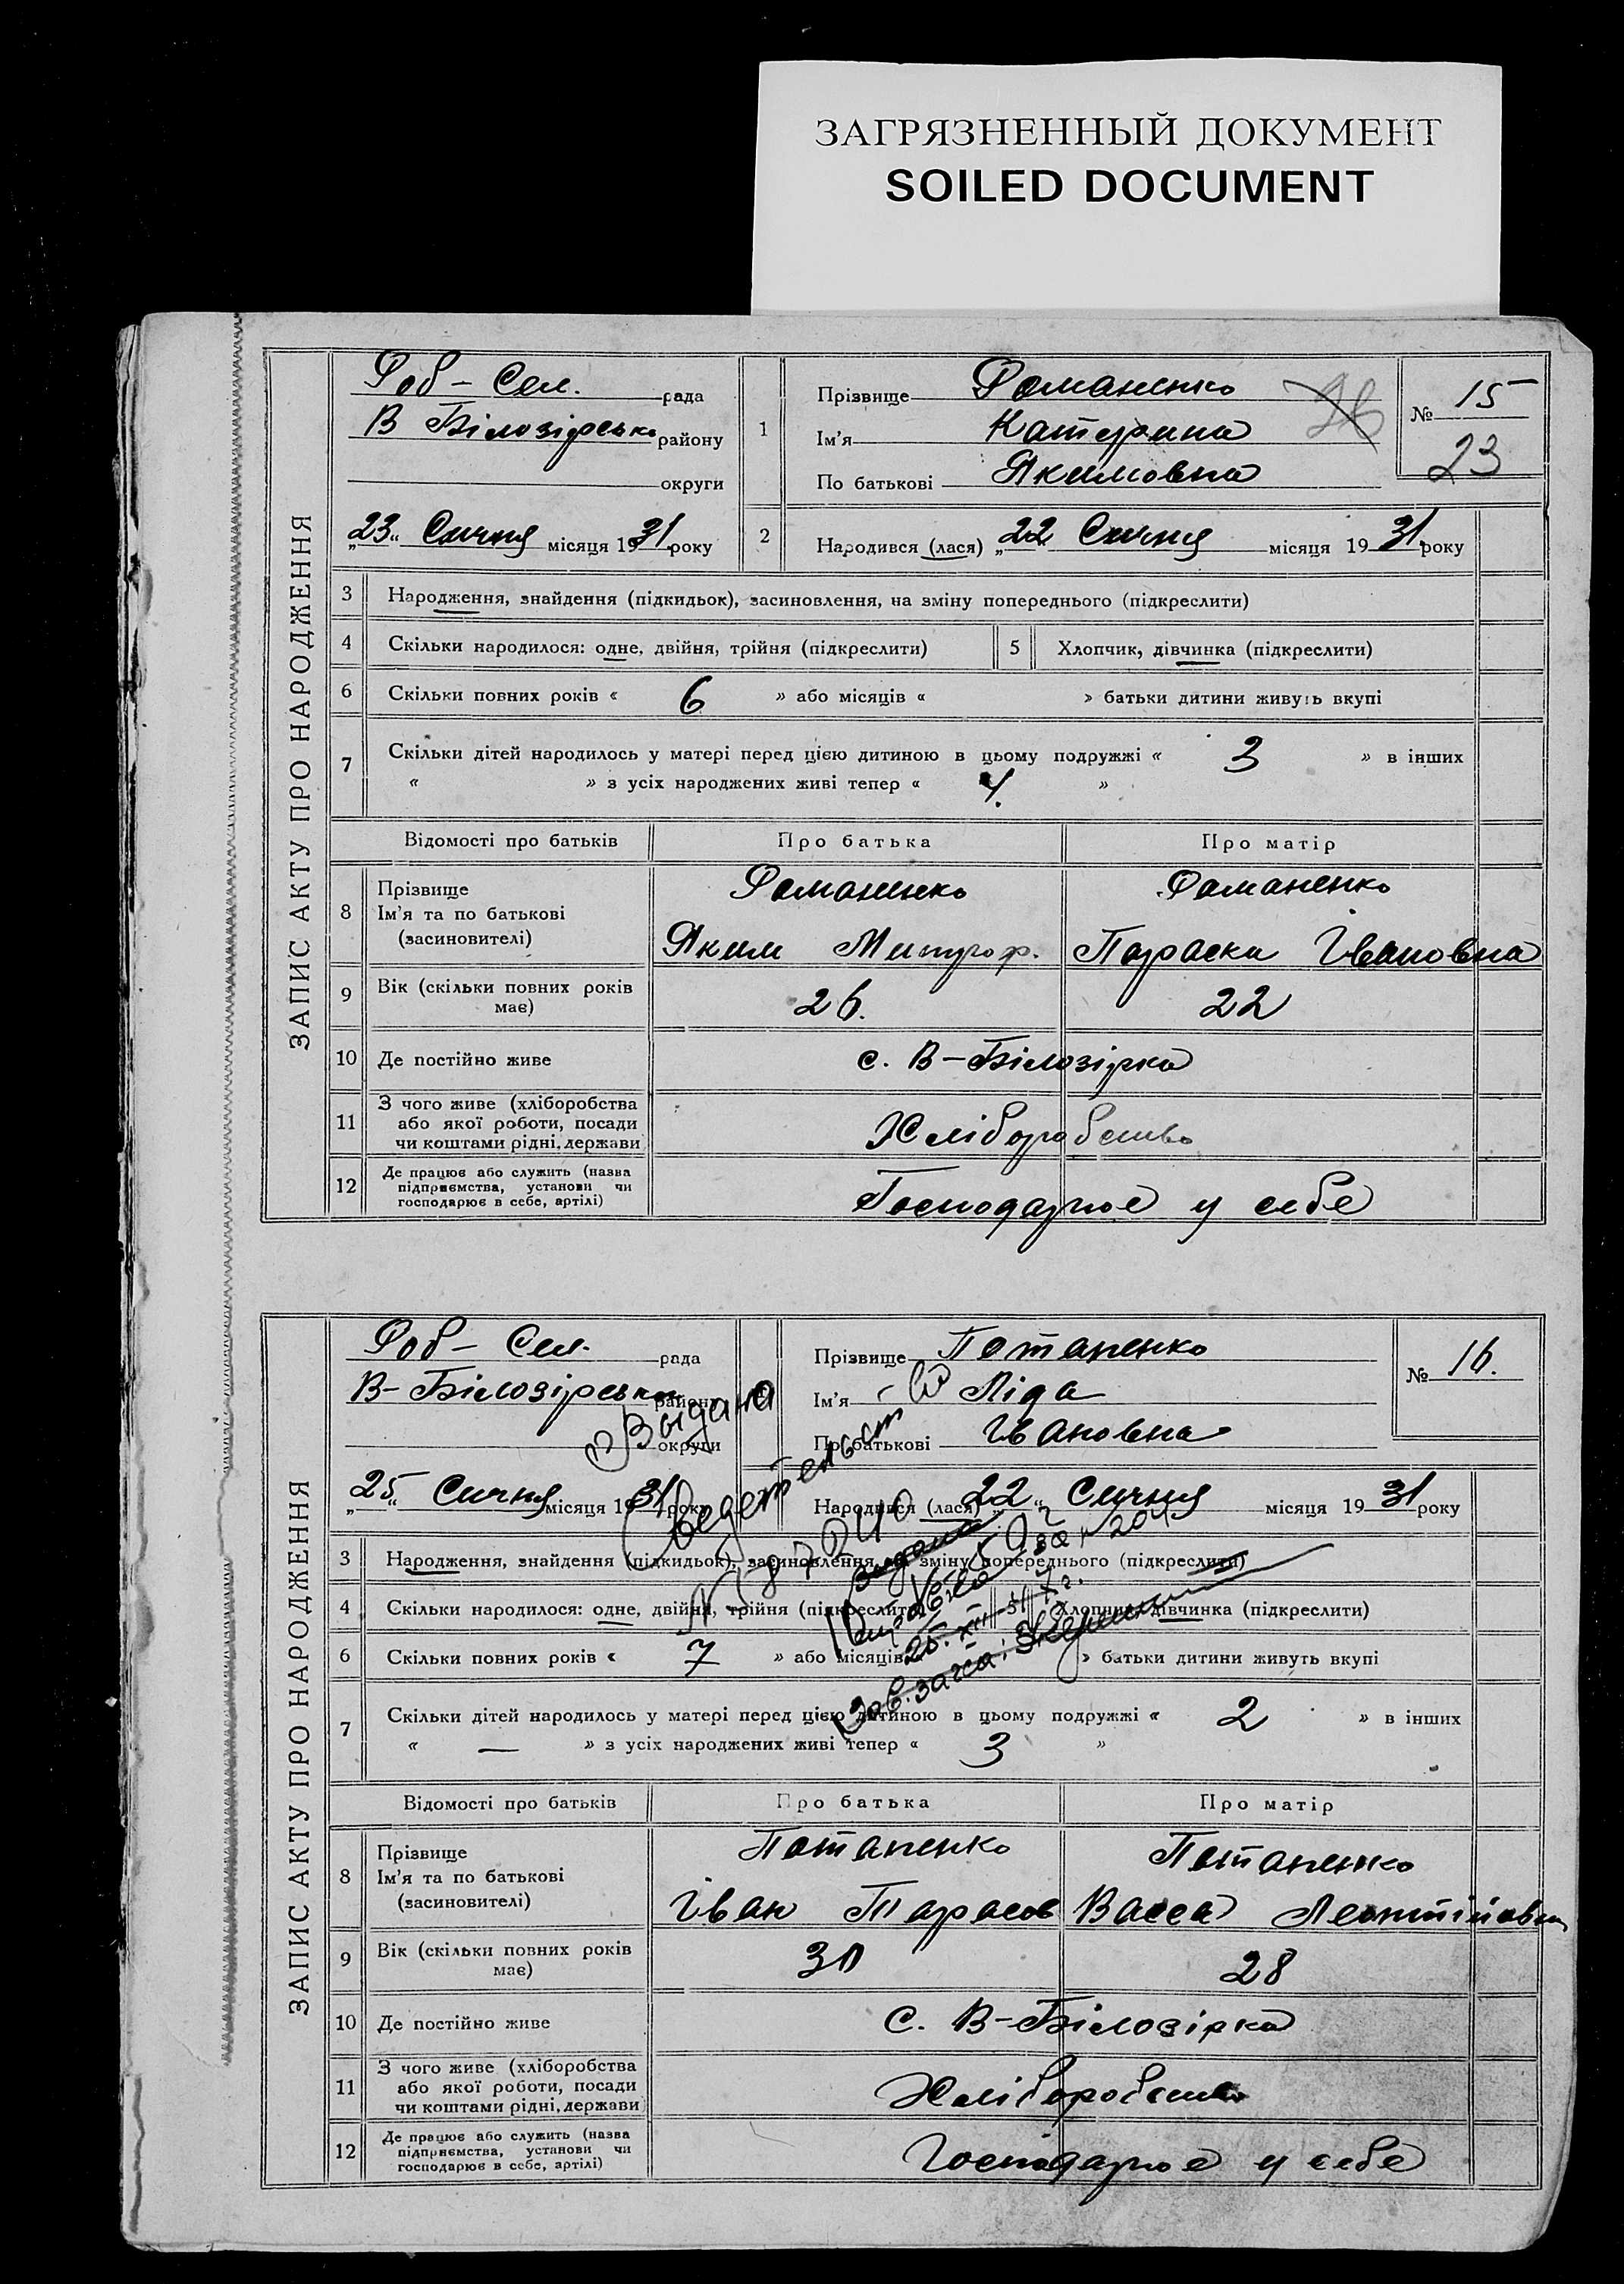 ЗАГРЯЗНЕННЫЙ ДОКУМЕНТ
SOILED DOCUMENT
ЗАПИС АКТУ ПРО НАРОДЖЕННЯ
Роб - Сел. рада
В Білозірсько району
округи
„23“ Січня місяця 1931 року
1
Прізвище Романенко
Ім'я Катерина
По батькові Якимовна
№ 15
23
2
Народився (лася) „22“ Січня місяця 1931 року
3 Народження, знайдення (підкидьок), засиновлення, на зміну попереднього (підкреслити)
4 Скільки народилося: одне, двійня, трійня (підкреслити) 5 Хлопчик, дівчинка (підкреслити)
6 Скільки повних років « 6 » або місяців « » батьки дитини живуть вкупі
7 Скільки дітей народилось у матері перед цією дитиною в цьому подружжі « 3 » в інших
« » з усіх народжених живі тепер « 4. »
Відомості про батьків Про батька Про матір
8 Прізвище Романенко Романенко
Ім'я та по батькові
(засиновителі) Яким Митроф. Параска Івановна
9 Вік (скільки повних років
має) 26. 22
10 Де постійно живе с. В-Білозірка
11 З чого живе (хліборобства
або якої роботи, посади
чи коштами рідні, держави Хліборобство
12 Де працює або служить (назва
підприємства, установи чи
господарює в себе, артілі) Господарює у себе
ЗАПИС АКТУ ПРО НАРОДЖЕННЯ
Роб - Сел. рада
В-Білозірсько району
округи
„25“ Січня місяця 1931 року
Прізвище Потапенко
Ім'я Ліда
По батькові Івановна
№ 16.
Народився (лася) „22“ Січня місяця 1931 року
Выдано
Сведетельст
3 Народження, знайдення (підкидьок), засиновлення, на зміну попереднього (підкреслити)
4 Скільки народилося: одне, двійня, трійня (підкреслити) 5 Хлопчик, дівчинка (підкреслити)
6 Скільки повних років « 7 » або місяців « » батьки дитини живуть вкупі
7 Скільки дітей народилось у матері перед цією дитиною в цьому подружжі « 2 » в інших
« — » з усіх народжених живі тепер « 3 »
Відомості про батьків Про батька Про матір
8 Прізвище Потапенко Потапенко
Ім'я та по батькові
(засиновителі) Іван Тарасов Васса Леонтіївна
9 Вік (скільки повних років
має) 30 28
10 Де постійно живе С. В-Білозірка
11 З чого живе (хліборобства
або якої роботи, посади
чи коштами рідні, держави Хліборобство
12 Де працює або служить (назва
підприємства, установи чи
господарює в себе, артілі) Господарює у себе